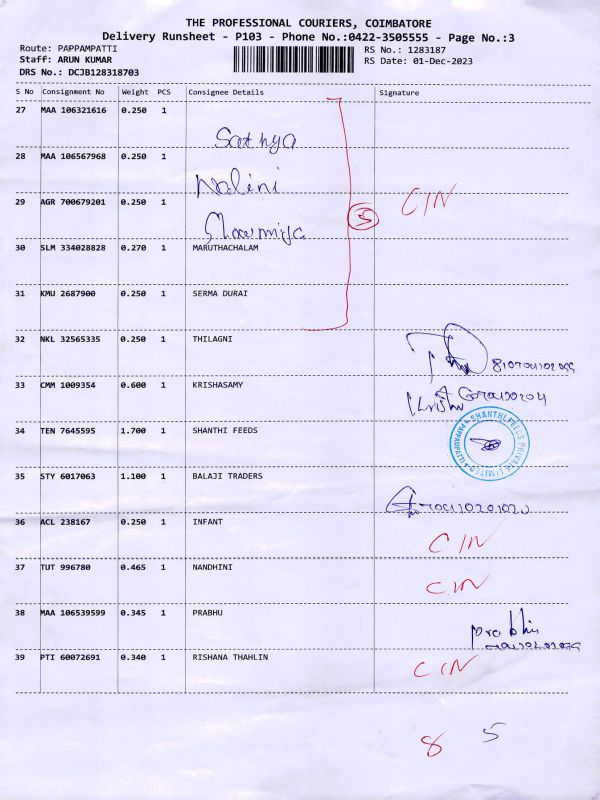 THE PROFESSIONAL COURIERS, COIMBATORE
Delivery Runsheet - P103 - Phone No.:0422-3505555 - Page No.:3
Route: PAPPAMPATTI RS No.: 1283187
Staff: ARUN KUMAR RS Date: 01-Dec-2023
DRS No.: DCJB128318703
S No Consignment No Weight PCS Consignee Details Signature
27 MAA 106321616 0.250 1
Sathya
28 MAA 106567968 0.250 1
Nalini
29 AGR 700679201 0.250 1
CIN
5
Mowmiya
30 SLM 334028828 0.270 1 MARUTHACHALAM
31 KMU 2687900 0.250 1 SERMA DURAI
32 NKL 32565335 0.250 1 THILAGNI
33 CMM 1009354 0.600 1 KRISHASAMY
34 TEN 7645595 1.700 1 SHANTHI FEEDS
SHANTHI FEEDS PRIVATE LIMITED
PAPPAMPATTI
35 STY 6017063 1.100 1 BALAJI TRADERS
36 ACL 238167 0.250 1 INFANT
CIN
37 TUT 996780 0.465 1 NANDHINI
CIN
38 MAA 106539599 0.345 1 PRABHU
Prabhu
39 PTI 60072691 0.340 1 RISHANA THAHLIN
CIN
8 5